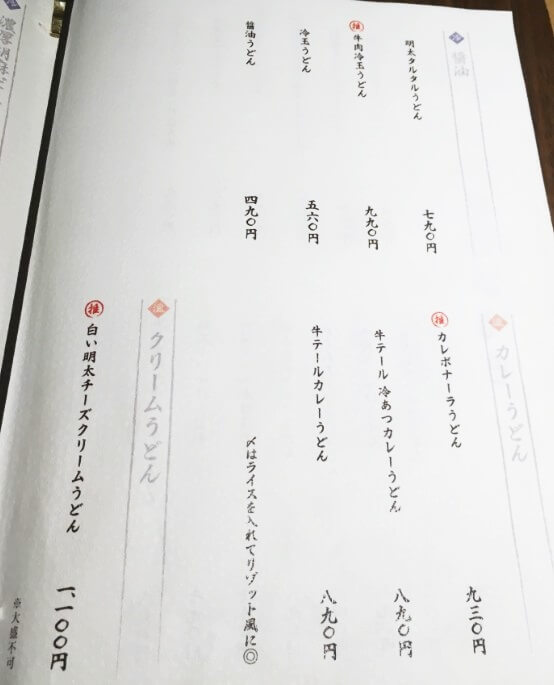 冷 醤油
明太タルタルうどん 七九〇円
推 牛肉冷玉うどん 九九〇円
冷玉うどん 五六〇円
醤油うどん 四九〇円
温 カレーうどん
推 カレボナーラうどん 九三〇円
牛テール 冷あつカレーうどん 八九〇円
牛テールカレーうどん 八九〇円
〆はライスを入れてリゾット風に◎
温 クリームうどん
推 白い明太チーズクリームうどん 一、一〇〇円
※大盛不可